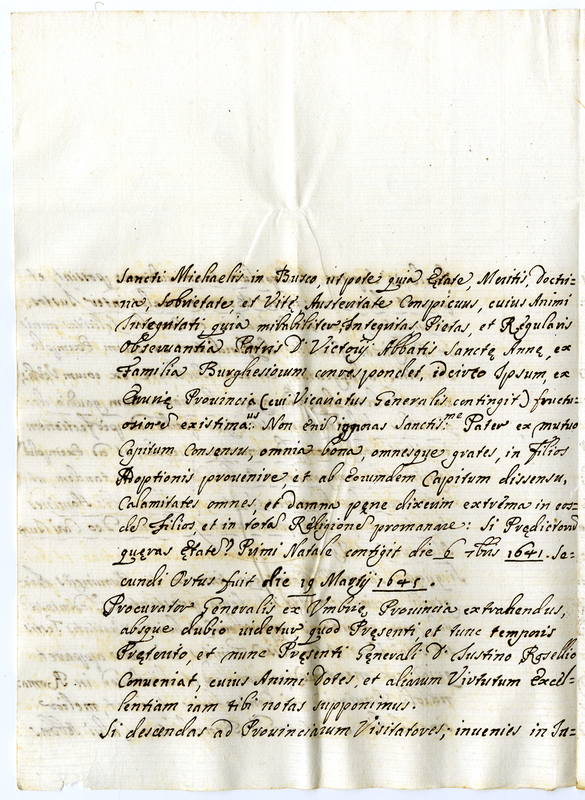 Sancti Michaelis in Busco, utpote quia Ętate, Meritis, Doctri=
na, Sobrietate, et Vitę Austeritate Conspicuus, cuius Animi
Integritati, quia mirabiliter Integritas Pietas, et Regularis
Observantia Patris D. Victorij Abbatis Sanctę Annę, ex
Familia Burghesiorum correspondet, idcirco Ipsum, ex
Provincia (cui Vicariatus Generalis contingit) fructu=
osiorē existimaus. Non enī ignoras Sanctis.me Pater ex mutuo
Capitum Consensu, omnia bona, omnesque grates, in filios
Adoptionis provenire, et ab Eorumdem Capitum dissensu,
Calamitates omnes, et damna penę dixerim extrēma in eos=
dē filios, et in totā Religionē promanare: Si Prędictorū
quęras Ętatē? Primi Natale contigit die 6 7bris 1641. Se=
cundi Ortus fuit die 19 Martij 1645.
Procurator Generalis ex Vmbrię Provincia extrahendus,
absque dubio videtur, quod Pręsenti, et tunc temporis
Pręterito, et nunc Pręsenti Generali D. Iustino Rosellio
Conveniat, cuius Animi Dotes, et aliarum Virtutum Excel=
lentiam iam tibi notas supponimus.
Si descendas ad Provinciarum Visitatores, invenies in In=